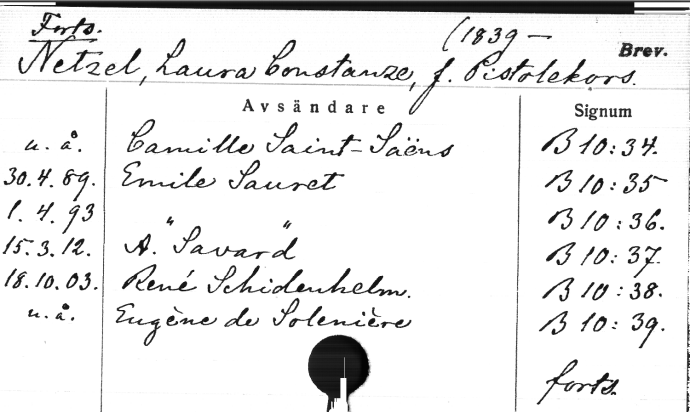 Forts. (1839 – Brev.
Netzel, Laura Constanze, f. Pistolekors.
Avsändare Signum
u. å. Camille Saint-Saëns B 10:34.
30.4.89. Emile Sauret B 10:35
1.4.93 " " B 10:36.
15.3.12. A. Savard B 10:37.
18.10.03. René Schidenhelm. B 10:38.
u. å. Eugène de Solenière B 10:39.
forts.